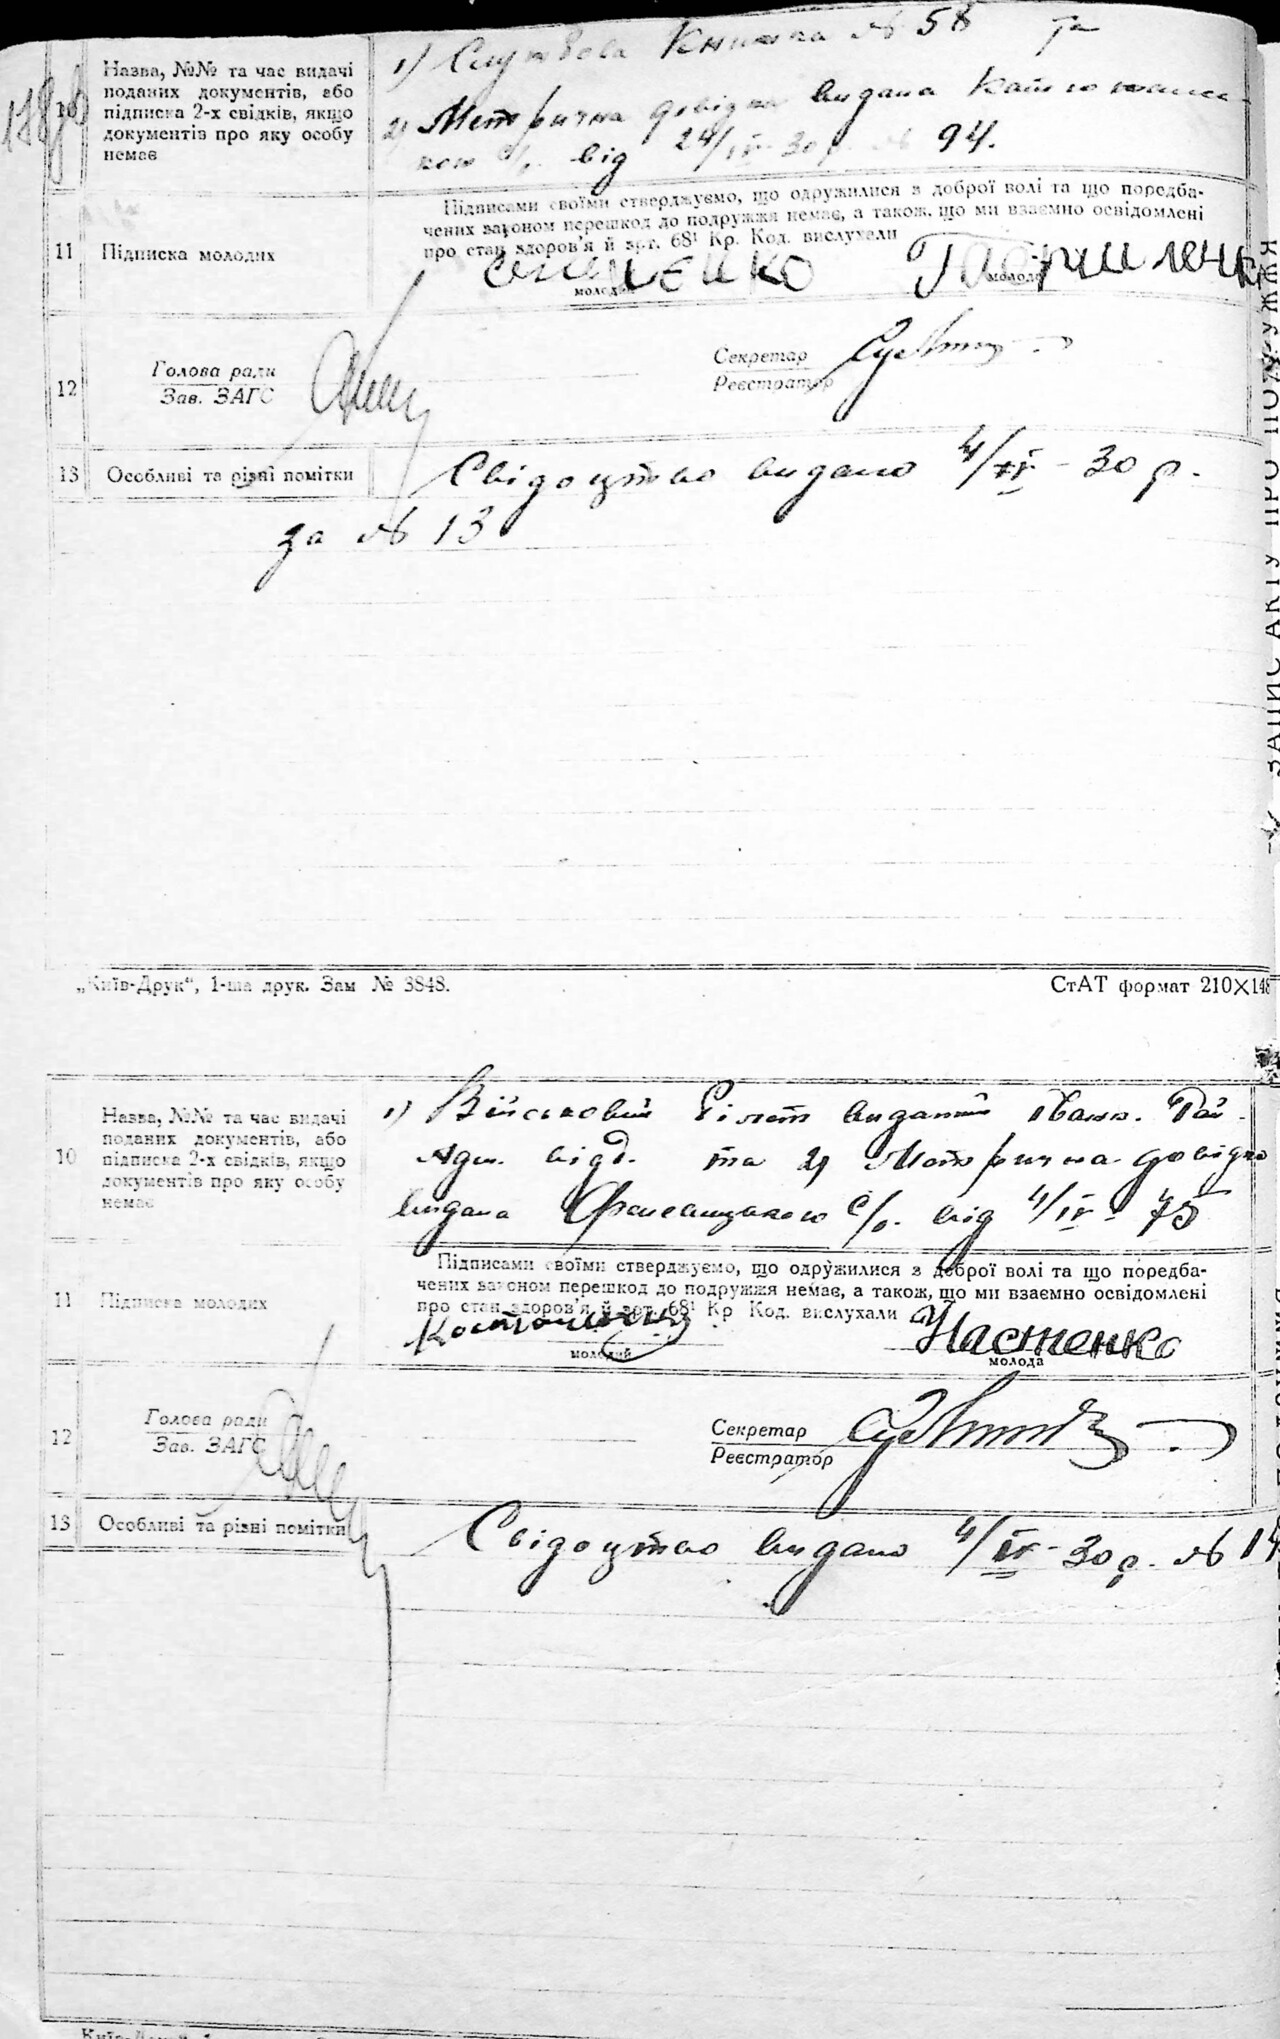 10
Назва, №№ та час видачі
поданих документів, або
підписка 2-х свідків, якщо
документів про яку особу
немає
1) Службова Книжка № 58 та
2) Метрична довідка видана
с/р. від 24/IV-30 р. № 94.
11
Підписка молодих
Підписами своїми стверджуємо, що одружилися з доброї волі та що передба-
чених законом перешкод до подружжя немає, а також, що ми взаємно освідомлені
про стан здоров'я й арт. 68¹ Кр. Код. вислухали
молодий
молода
12
Голова ради
Зав. ЗАГС
Секретар
Реєстратор
13
Особливі та різні помітки
Свідоцтво видано 4/IV-30 р.
за № 13
„Київ-Друк“, 1-ша друк. Зам № 3848.
СтАТ формат 210×148
10
Назва, №№ та час видачі
поданих документів, або
підписка 2-х свідків, якщо
документів про яку особу
немає
1) Військовий білет виданий Рай.
Адм. відд. та 2) Метрична довідка
видана с/р. від 4/IV 75
11
Підписка молодих
Підписами своїми стверджуємо, що одружилися з доброї волі та що передба-
чених законом перешкод до подружжя немає, а також, що ми взаємно освідомлені
про стан здоров'я й арт. 68¹ Кр Код. вислухали
Настенко
молодий
молода
12
Голова ради
Зав. ЗАГС
Секретар
Реєстратор
13
Особливі та різні помітки
Свідоцтво видано 4/IV-30 р. № 14
ЗАПИС АКТУ ПРО ПОДРУЖЖЯ